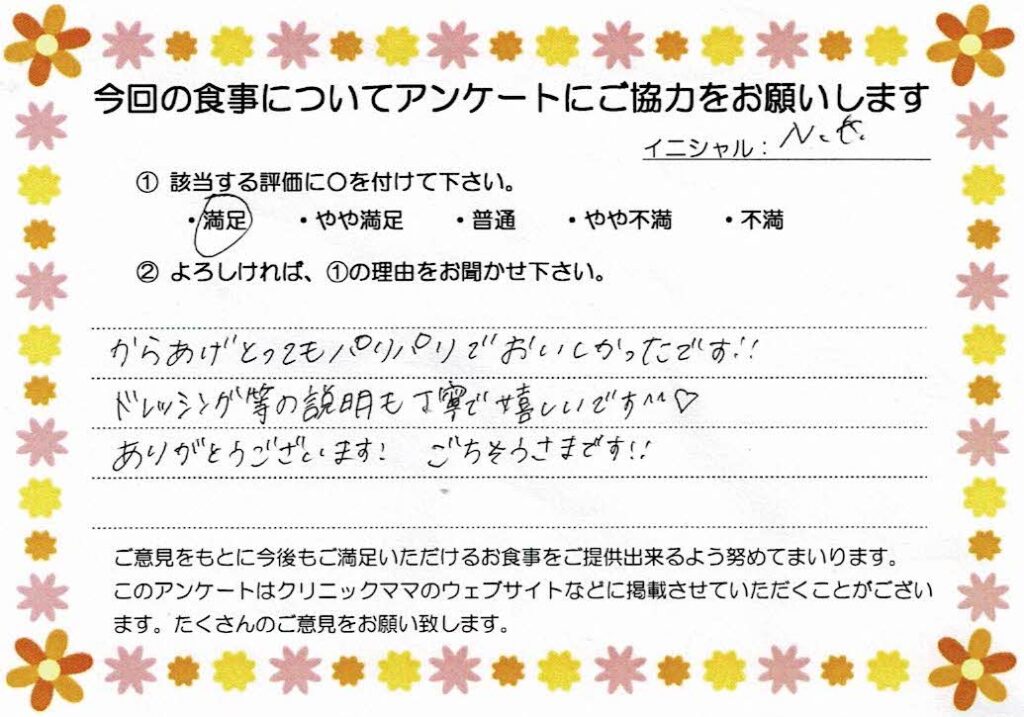 今回の食事についてアンケートにご協力をお願いします
イニシャル： N.
① 該当する評価に〇を付けて下さい。
・満足 ・やや満足 ・普通 ・やや不満 ・不満
② よろしければ、①の理由をお聞かせ下さい。
からあげとってもパリパリでおいしかったです!!
ドレッシング等の説明も丁寧で嬉しいです^^♡
ありがとうございます! ごちそうさまです!!
ご意見をもとに今後もご満足いただけるお食事をご提供出来るよう努めてまいります。
このアンケートはクリニックママのウェブサイトなどに掲載させていただくことがござい
ます。たくさんのご意見をお願い致します。